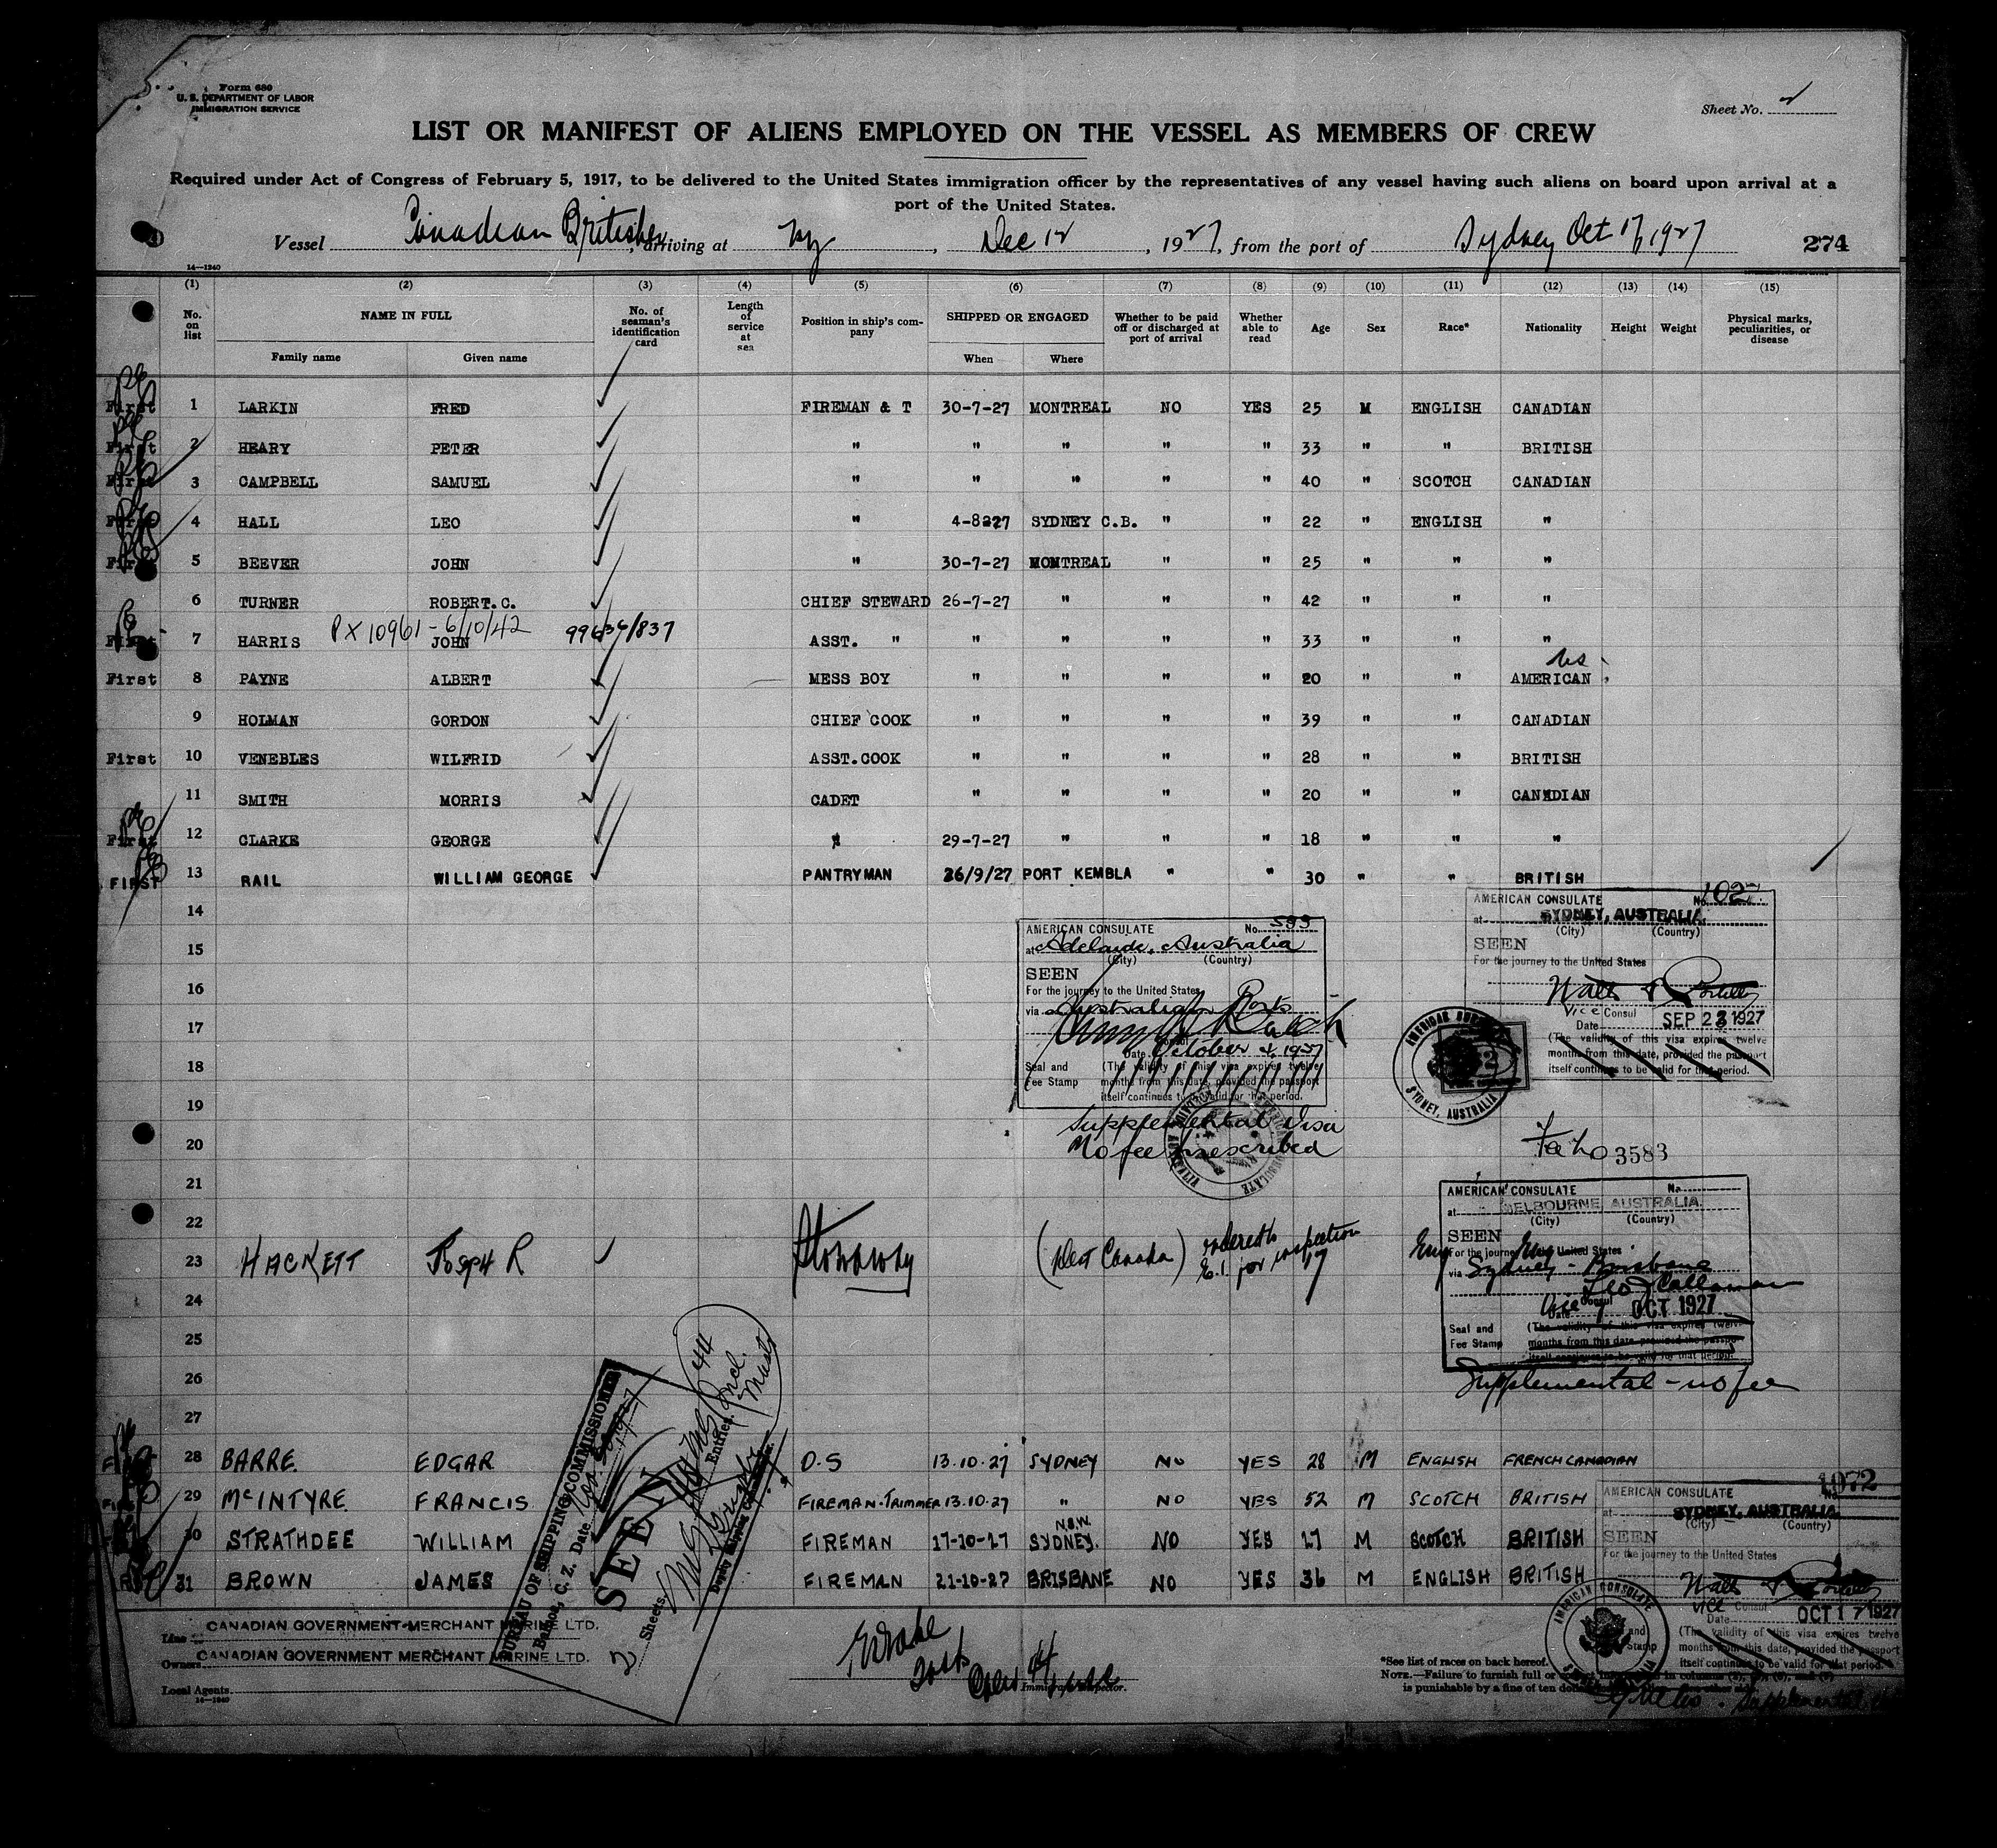 Form 680
U. S. DEPARTMENT OF LABOR
IMMIGRATION SERVICE
Sheet No. 2
LIST OR MANIFEST OF ALIENS EMPLOYED ON THE VESSEL AS MEMBERS OF CREW
Required under Act of Congress of February 5, 1917, to be delivered to the United States immigration officer by the representatives of any vessel having such aliens on board upon arrival at a
port of the United States.
Vessel Canadian Britisher, arriving at Ny, Dec 12, 1927, from the port of Sydney Oct 17, 1927 274
14—1240
(1) (2) (3) (4) (5) (6) (7) (8) (9) (10) (11) (12) (13) (14) (15)
No. on list NAME IN FULL No. of seaman's identification card Length of service at sea Position in ship's company SHIPPED OR ENGAGED Whether to be paid off or discharged at port of arrival Whether able to read Age Sex Race* Nationality Height Weight Physical marks, peculiarities, or disease
Family name Given name When Where
First 1 LARKIN FRED FIREMAN & T 30-7-27 MONTREAL NO YES 25 M ENGLISH CANADIAN
First 2 HEARY PETER " " " " " 33 " " BRITISH
First 3 CAMPBELL SAMUEL " " " " " 40 " SCOTCH CANADIAN
First 4 HALL LEO " 4-8227 SYDNEY C.B. " " 22 " ENGLISH "
First 5 BEEVER JOHN " 30-7-27 MONTREAL " " 25 " " "
6 TURNER ROBERT.C. CHIEF STEWARD 26-7-27 " " " 42 " " "
PX 10961 - 6/10/42
First 7 HARRIS JOHN ASST. " " " " " 33 " " "
First 8 PAYNE ALBERT MESS BOY " " " " 20 " " AMERICAN
9 HOLMAN GORDON CHIEF COOK " " " " 39 " " CANADIAN
First 10 VENEBLES WILFRID ASST.COOK " " " " 28 " " BRITISH
11 SMITH MORRIS CADET " " " " 20 " " CANADIAN
First 12 CLARKE GEORGE " 29-7-27 " " " 18 " " "
FIRST 13 RAIL WILLIAM GEORGE PANTRYMAN 26/9/27 PORT KEMBLA " " 30 " " BRITISH
14
15
16
17
18
19
20
21
22
23 HACKETT Joseph R Stowaway (Dest Canada) ordered to E.I. for inspection
24
25
26
27
AMERICAN CONSULATE No. 599
at Adelaide, Australia
(City) (Country)
SEEN
For the journey to the United States
via Australian Ports
Consul
Date October 4, 1927
Seal and Fee Stamp
(The validity of this visa expires twelve
months from this date, provided the passport
itself continues to be valid for that period.
Supplemental Visa
No fee prescribed
AMERICAN CONSULATE No. 1027
at SYDNEY, AUSTRALIA
(City) (Country)
SEEN
For the journey to the United States
Vice Consul
Date SEP 23 1927
(The validity of this visa expires twelve
months from this date, provided the passport
itself continues to be valid for that period.
AMERICAN CONSULATE SYDNEY, AUSTRALIA
3583
AMERICAN CONSULATE No.
at MELBOURNE AUSTRALIA.
(City) (Country)
SEEN
For the journey to the United States
via Sydney - Brisbane
Vice Consul
Date 7 OCT 1927
Seal and Fee Stamp
(The validity of this visa expires twelve
months from this date provided the passport
itself continues to be valid for that period.
Supplemental - no fee
BUREAU OF SHIPPING COMMISSIONER
Balboa, C. Z. Date
SEEN
2 Sheets, Names 44 Entries. Incl. Mast
Deputy Shipping Commissioner.
28 BARRE. EDGAR O.S 13.10.27 SYDNEY NO YES 28 M ENGLISH FRENCH CANADIAN
29 McINTYRE. FRANCIS. FIREMAN-TRIMMER 13.10.27 " NO YES 52 M SCOTCH BRITISH
30 STRATHDEE WILLIAM FIREMAN 17-10-27 SYDNEY. N.S.W. NO YES 27 M SCOTCH BRITISH
31 BROWN JAMES FIREMAN 21-10-27 BRISBANE NO YES 36 M ENGLISH BRITISH
AMERICAN CONSULATE No. 1072
at SYDNEY, AUSTRALIA
(City) (Country)
SEEN
For the journey to the United States
Vice Consul
Date OCT 17 1927
(The validity of this visa expires twelve
months from this date, provided the passport
itself continues to be valid for that period.
AMERICAN CONSULATE
Line CANADIAN GOVERNMENT-MERCHANT MARINE LTD.
Owners CANADIAN GOVERNMENT MERCHANT MARINE LTD.
Local Agents
14—1240
Immigrant Inspector.
*See list of races on back hereof.
NOTE.—Failure to furnish full or
is punishable by a fine of ten
Supplemental